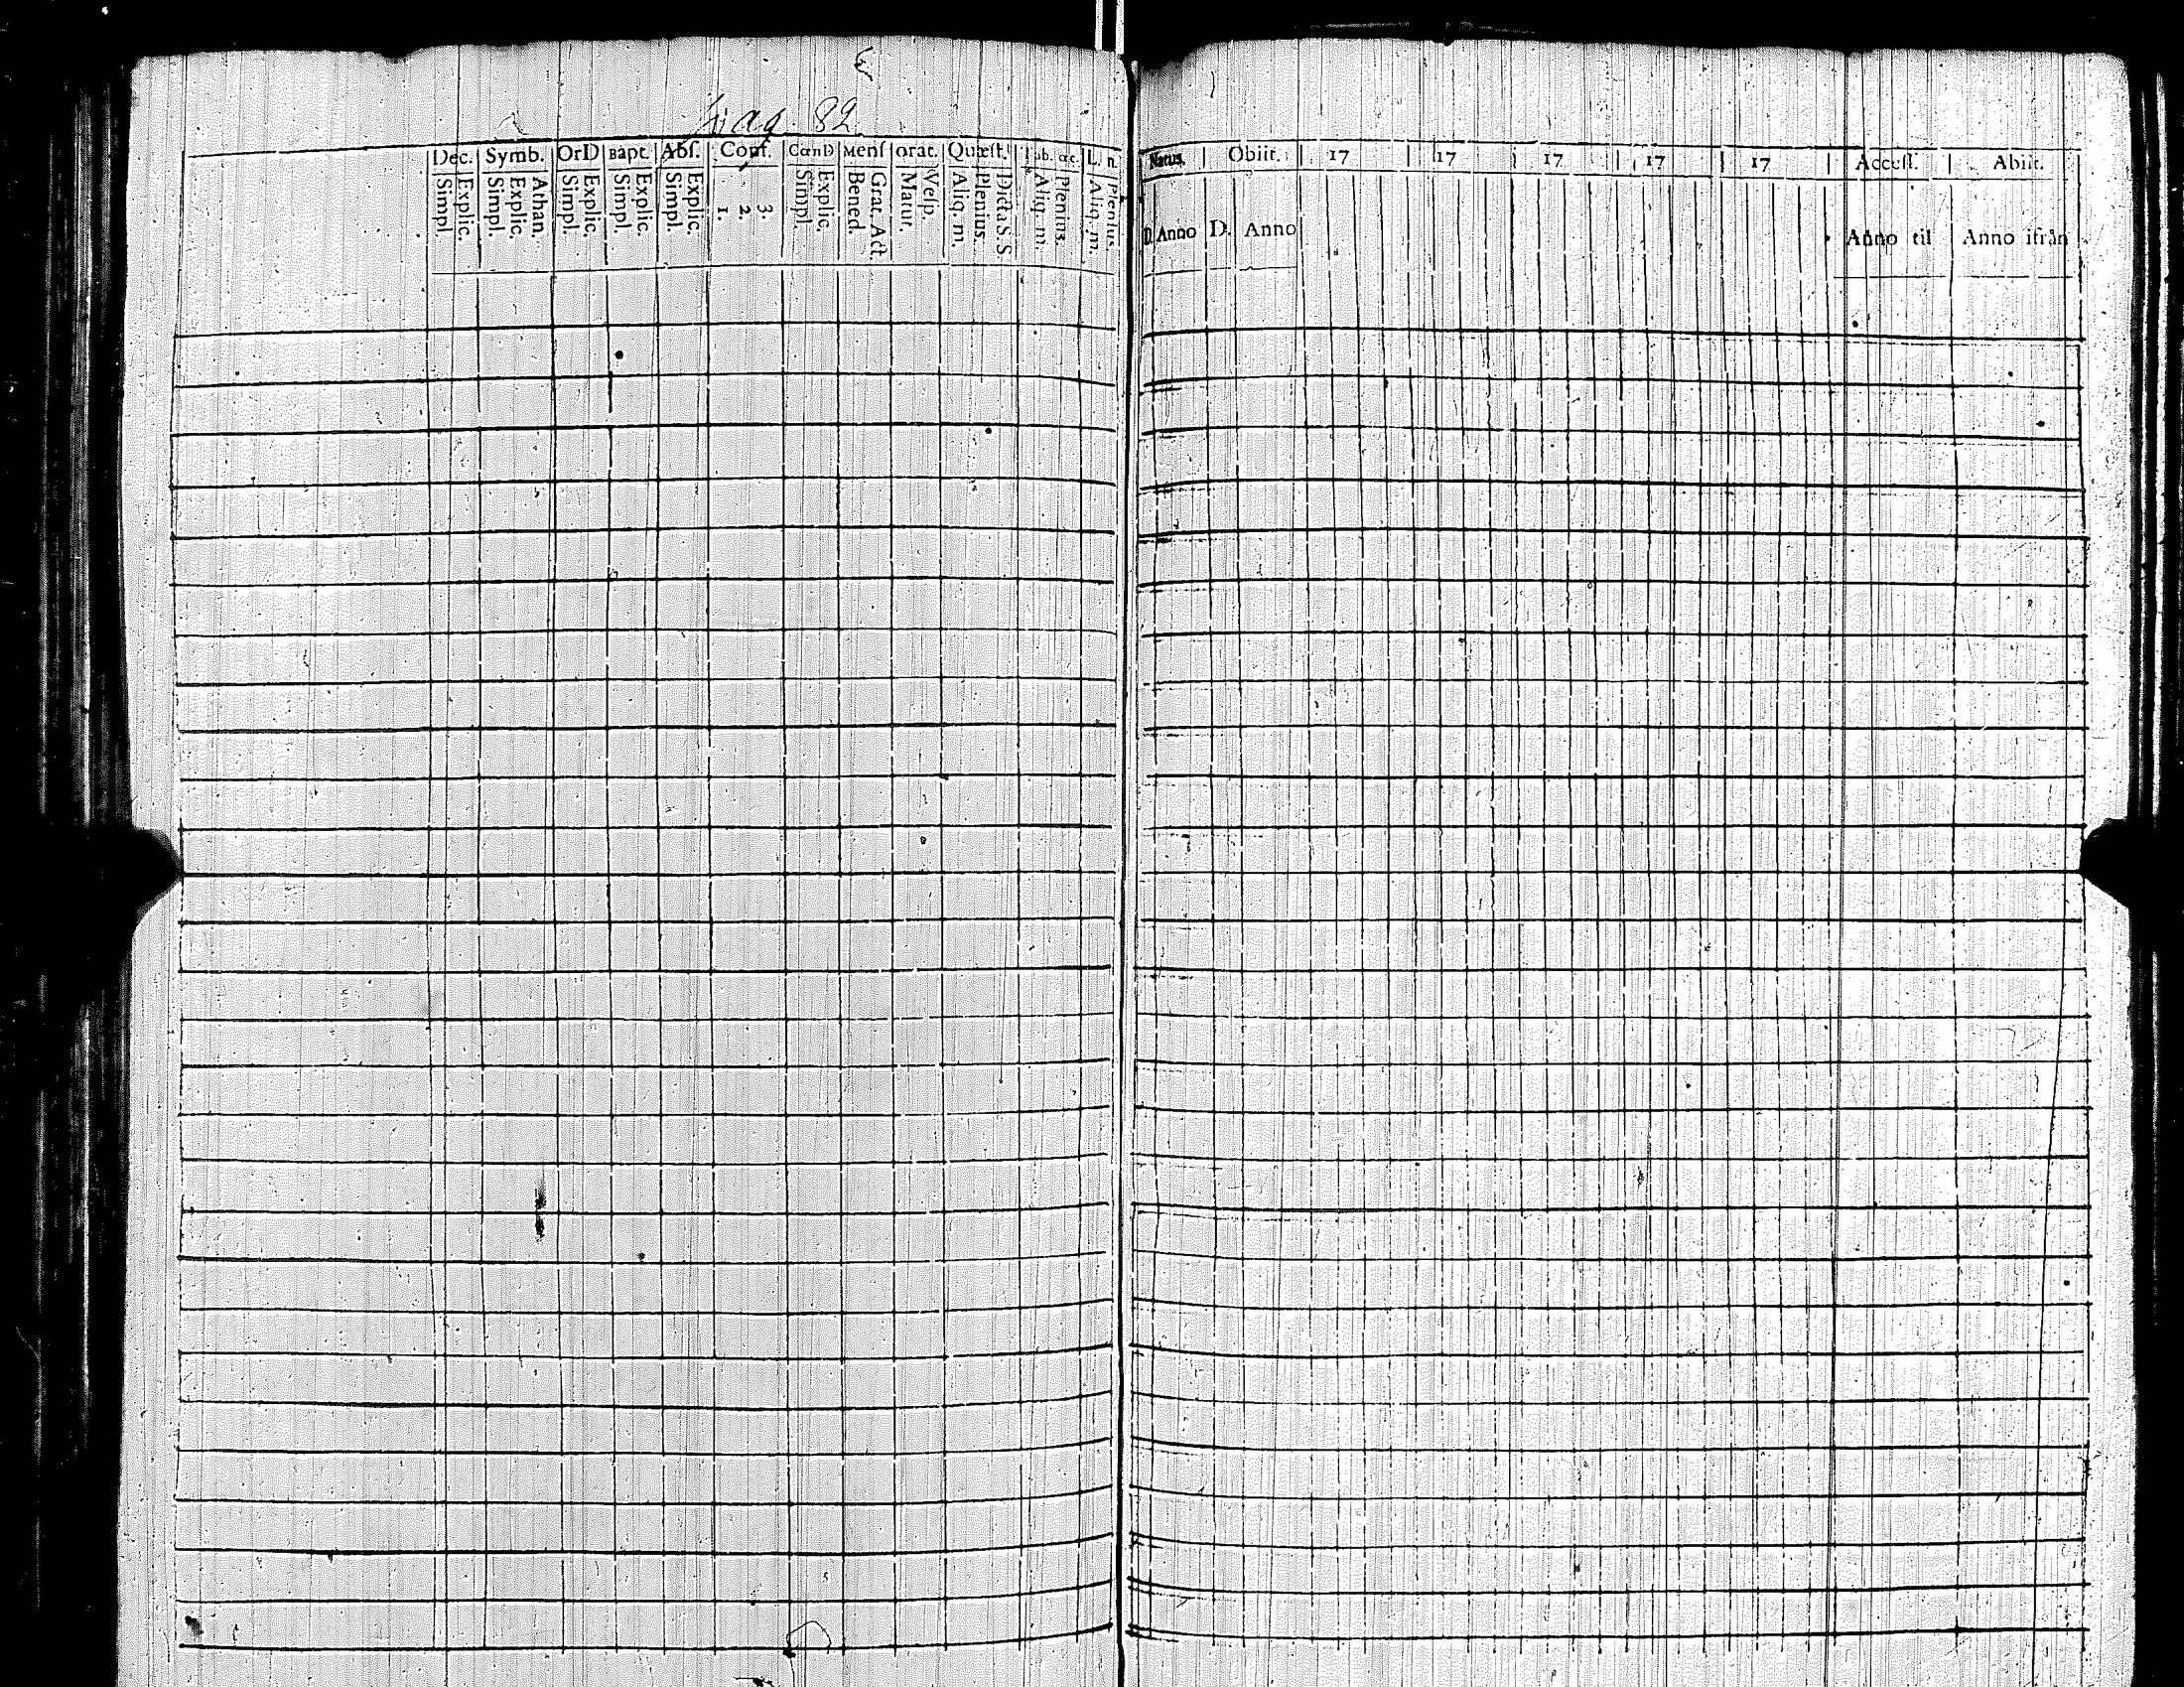 pag. 82
Dec. Symb. OrD Bapt. Abſ. Conf. CœnD Menſ orat. Quæſt. Tab. œc. L. n.
Simpl. Explic. Simpl. Explic. Athan. Simpl. Explic. Simpl. Explic. Simpl. Explic. 1. 2. 3. Simpl. Explic. Bened. Grat. Act Matut. Veſp. Aliq. m. Plenius. Dicta S. S Aliq. m. Plenius. Aliq. m. Plenius.
Natus. Obiit. 17 17 17 17 17 Acceſſ. Abiit.
D. Anno D. Anno Anno til Anno ifrån